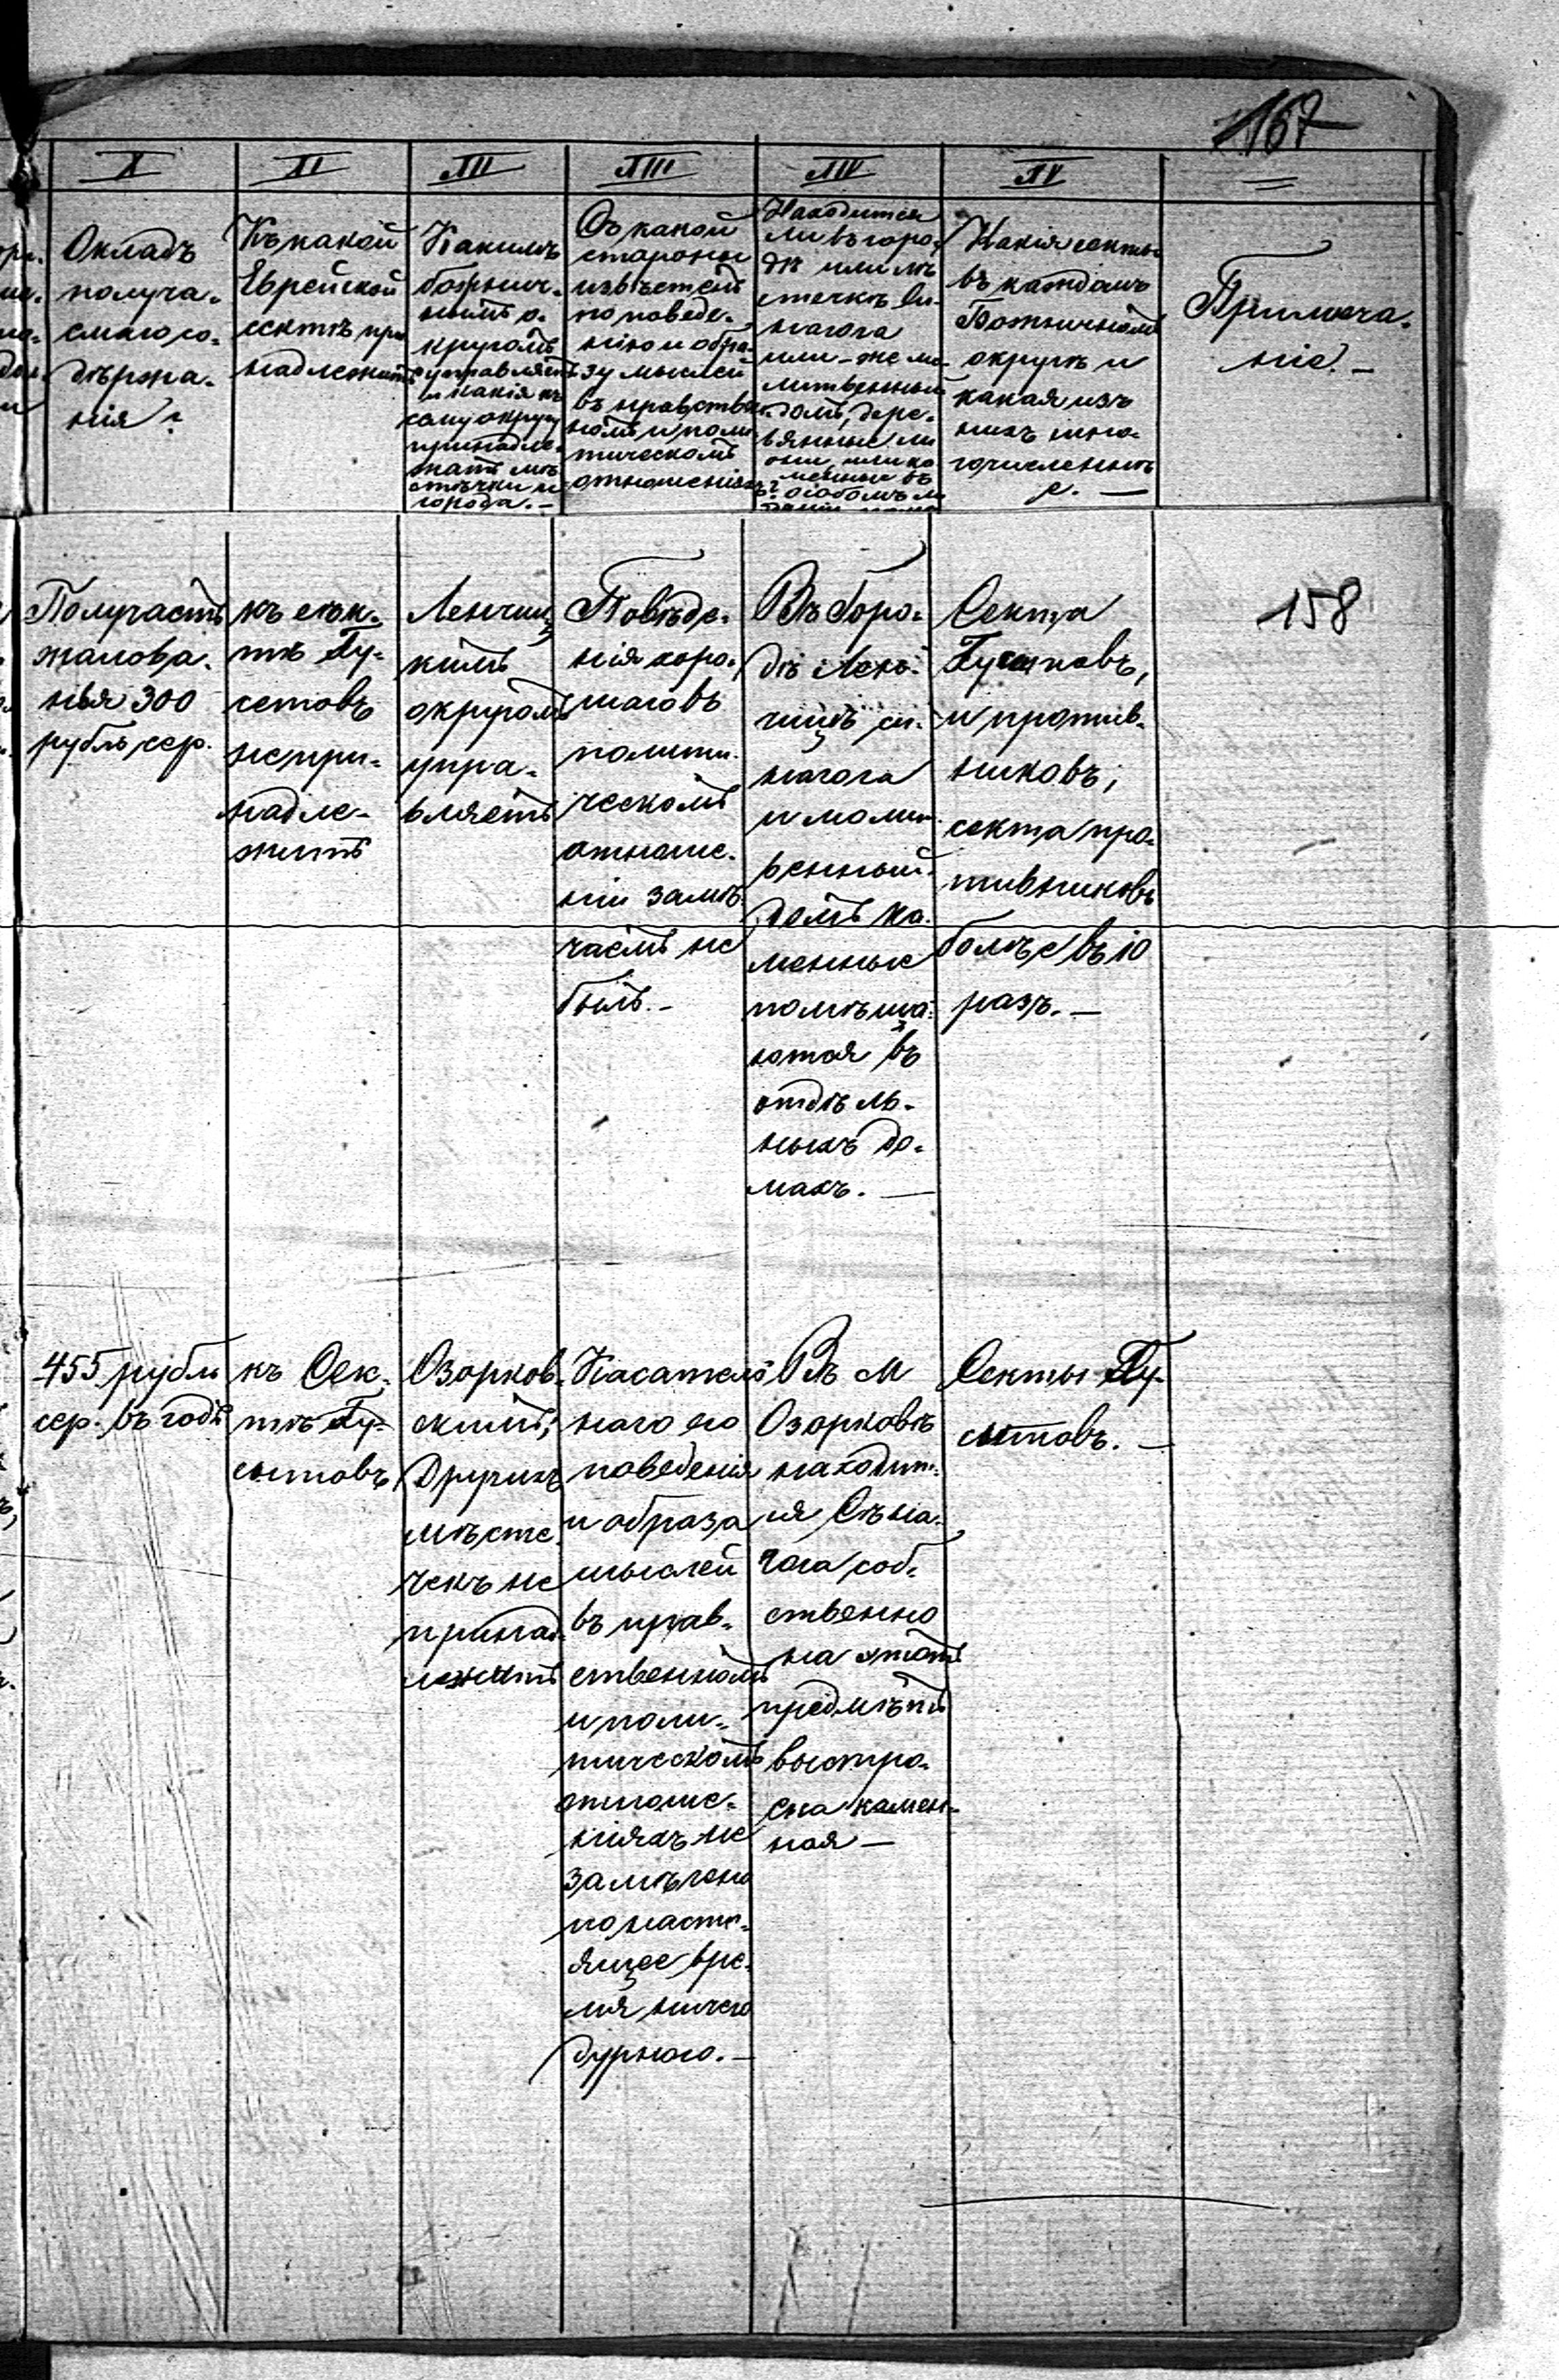 167
X
XI
XII
XIII
XIV
XV
=
Окладъ
получа-
емаго со-
дѣржа-
нія?
Къ какой
Еврейской
сектѣ при
надлежитъ
Какимъ
божнич-
нымъ о-
кругомъ
управляетъ
и какія къ
сему округу
принадле-
жатъ мѣ
стѣчки и
города.—
Съ какой
стороны
извѣстенъ
по поведе-
нію и обра-
зу мыслей
въ нравствен
номъ и поли
тическомъ
отношеніяхъ?
Находится
ли въ горо-
дѣ или мѣ
стечкѣ си-
нагога
или-же мо-
литвенный
домъ, дере-
вянные ли
они, или ка
менные въ
особомъ ли
Какія секты
въ каждомъ
Божничномъ
округѣ и
какая изъ
нихъ мно-
гочисленнѣ
е.—
Примѣча-
ніе.—
Получаетъ
жалова-
нья 300
рубль сер.
къ сек-
тѣ Гу-
сетовъ
непри-
надле-
житъ
Ленчиц
кимъ
округомъ
упра-
вляетъ
Повѣде-
нія хоро-
шаго въ
полити-
ческомъ
отноше-
ніи замѣ-
чаемъ не
былъ.—
Въ Горо-
дѣ Лен-
чицѣ си-
нагога
и молит-
венный
домъ ка-
менные
помѣща-
ются въ
отдѣль-
ныхъ до-
махъ.—
Секта
Гусетовъ,
и против-
никовъ;
секта про-
тивниковъ
болѣе въ 10
разъ.—
158
455 рубль
сер. въ годъ
къ Сек-
тѣ Гу-
сытовъ
Озорков-
скимъ;
Другихъ
мѣсте-
чекъ не
принад-
лежитъ
Касатель-
наго его
поведенія
и образа
мыслей
въ нрав-
ственномъ
и поли-
тическомъ
отноше-
ніяхъ не
замѣчено
по насто-
ящее вре-
мя ничего
дурнаго.—
Въ м
Озорковѣ
находит-
ся Сѣна-
гога соб-
ственно
на этотъ
предмѣтъ
выстро-
ена камен-
ная—
Секты Гу-
сытовъ.—